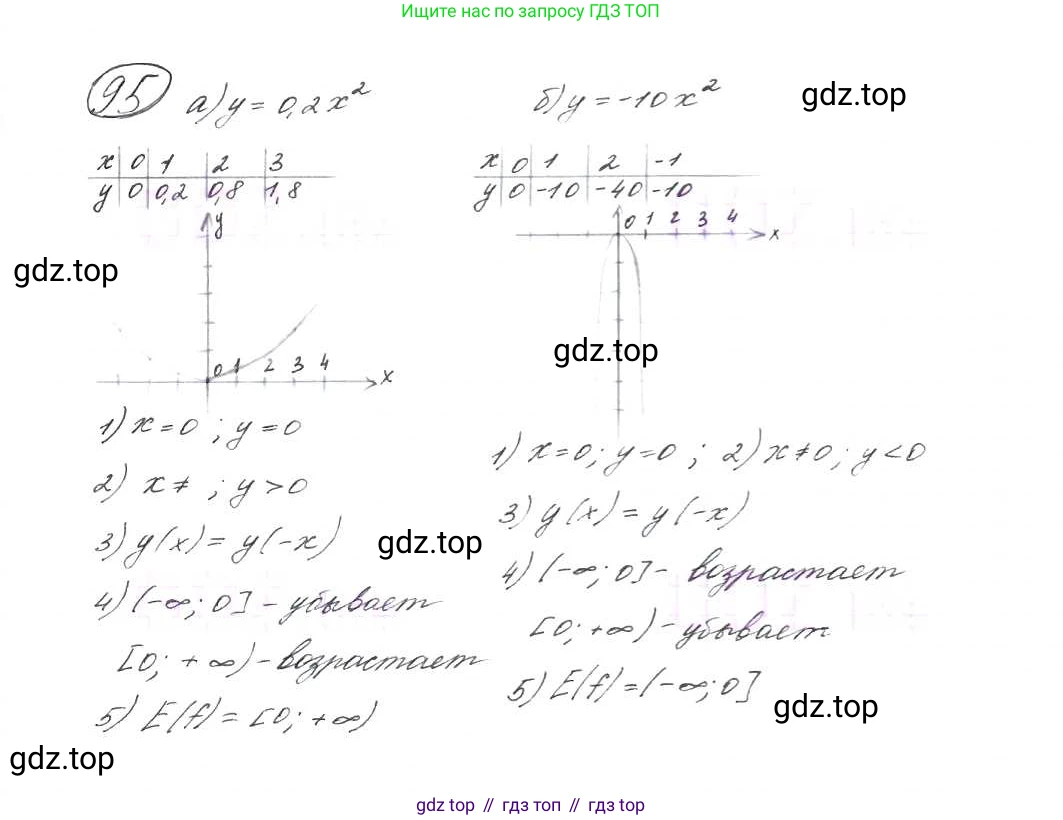 Ищите нас по запросу ГДЗ ТОП
95 а) y = 0,2x²
x 0 1 2 3
y 0 0,2 0,8 1,8
y
0 1 2 3 4 x
1) x = 0 ; y = 0
2) x ≠ ; y > 0
3) y(x) = y(-x)
4) (-∞; 0] - убывает
[0; +∞) - возрастает
5) E(f) = [0; +∞)
б) y = -10x²
x 0 1 2 -1
y 0 -10 -40 -10
0 1 2 3 4 x
1) x = 0; y = 0 ; 2) x ≠ 0; y < 0
3) y(x) = y(-x)
4) (-∞; 0] - возрастает
[0; +∞) - убывает
5) E(f) = (-∞; 0]
gdz.top
gdz.top
gdz.top
gdz.top
gdz.top
gdz.top
gdz top // гдз топ // gdz top